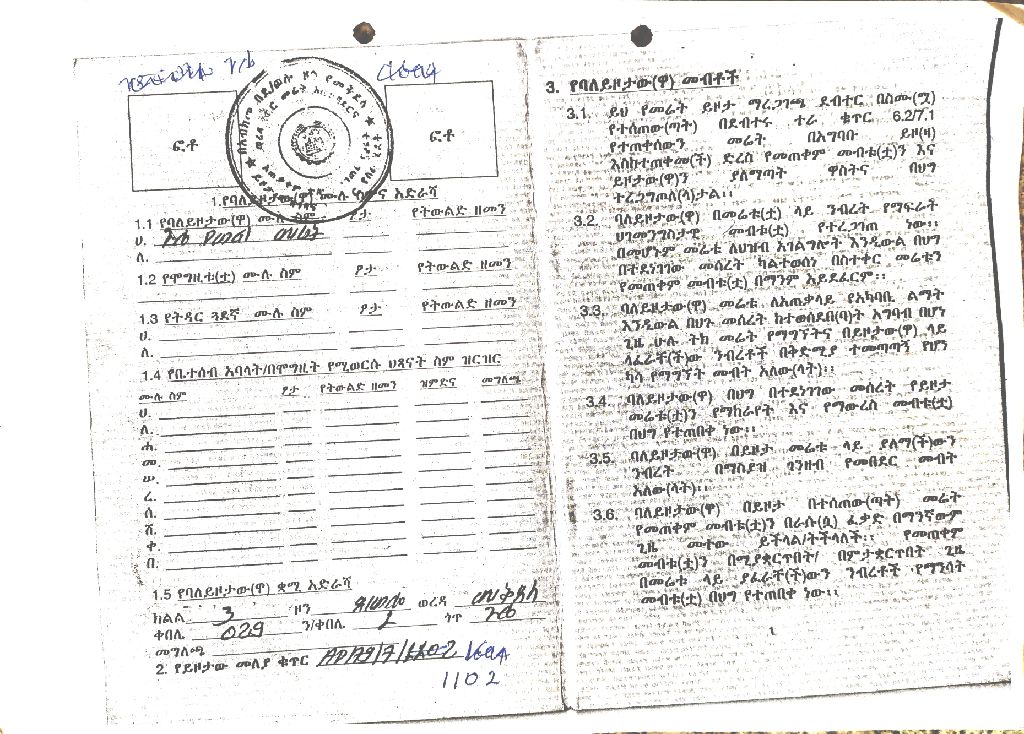 ፎቶ
ፎቶ
1.የባለይዞታው(ዋ) ሙሉ ስምና አድራሻ
1.1 የባለይዞታው(ዋ) ሙሉ ስም ፆታ የትውልድ ዘመን
ሀ.
ለ.
1.2 የሞግዚቱ(ቷ) ሙሉ ስም ፆታ የትውልድ ዘመን
1.3 የትዳር ጓደኛ ሙሉ ስም ፆታ የትውልድ ዘመን
ሀ.
ለ.
1.4 የቤተሰብ አባላት/በሞግዚት የሚወርሱ ህጻናት ስም ዝርዝር
ሙሉ ስም ፆታ የትውልድ ዘመን ዝምድና መግለጫ
ሀ.
ለ.
ሐ.
መ.
ሠ.
ረ.
ሰ.
ሸ.
ቀ.
በ.
1.5 የባለይዞታው(ዋ) ቋሚ አድራሻ
ክልል 3 ዞን ደ/ወሎ ወረዳ መቅደላ
ቀበሌ 029 ን/ቀበሌ 2 ጎጥ
መግለጫ
2. የይዞታው መለያ ቁጥር
1102
3. የባለይዞታው(ዋ) መብቶች
3.1. ይህ የመሬት ይዞታ ማረጋገጫ ደብተር በስሙ(ሟ)
የተሰጠው(ጣት) በደብተሩ ተራ ቁጥር 6.2/7.1
የተጠቀሰውን መሬት በአግባቡ ይዞ(ዛ)
እስከተጠቀመ(ች) ድረስ የመጠቀም መብቱ(ቷ)ን እና
ይዞታው(ዋ)ን ያለማጣት ዋስትና በህግ
ተረጋግጦለ(ላ)ታል፡፡
3.2. ባለይዞታው(ዋ) በመሬቱ(ቷ) ላይ ንብረት የማፍራት
ህገመንግስታዊ መብቱ(ቷ) የተረጋገጠ ነው፡፡
በመሆኑም መሬቱ ለህዝብ አገልግሎት እንዲውል በህግ
በተደነገገው መሰረት ካልተወሰነ በስተቀር መሬቱን
የመጠቀም መብቱ(ቷ) በማንም አይደፈርም፡፡
3.3. ባለይዞታው(ዋ) መሬቱ ለአጠቃላይ የአካባቢ ልማት
እንዲውል በህጉ መሰረት ከተወሰደበ(ባ)ት አግባብ በሆነ
ጊዜ ሁሉ ትክ መሬት የማግኘትና በይዞታው(ዋ) ላይ
ላፈራቸ(ች)ው ንብረቶች በቅድሚያ ተመጣጣኝ የሆነ
ካሳ የማግኘት መብት አለው(ላት)፡፡
3.4. ባለይዞታው(ዋ) በህግ በተደነገገው መሰረት የይዞታ
መሬቱ(ቷ)ን የማከራየት እና የማውረስ መብቱ(ቷ)
በህግ የተጠበቀ ነው፡፡
3.5. ባለይዞታው(ዋ) በይዞታ መሬቱ ላይ ያለማ(ች)ውን
ንብረት በማስያዝ ገንዘብ የመበደር መብት
አለው(ላት)፡፡
3.6. ባለይዞታው(ዋ) በይዞታ በተሰጠው(ጣት) መሬት
የመጠቀም መብቱ(ቷ)ን በራሱ(ሷ) ፈቃድ በማንኛውም
ጊዜ መተው ይችላል/ትችላለች፡፡ የመጠቀም
መብቱ(ቷ)ን በሚያቋርጥበት/ በምታቋርጥበት ጊዜ
በመሬቱ ላይ ያፈራቸ(ች)ውን ንብረቶች የማንሳት
መብቱ(ቷ) በህግ የተጠበቀ ነው፡፡